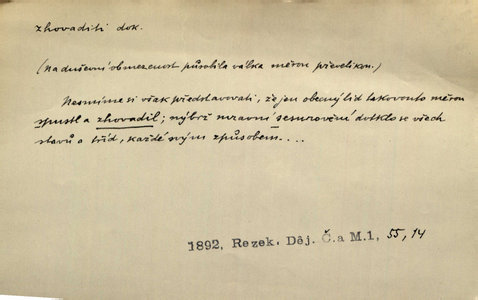 zhovaditi dok.
(Na duševní obmezenost působila válka měrou převelikou.)
Nesmíme si však představovati, že jen obecný lid takovouto měrou
spustl a zhovadil; nýbrž mravní sesurovění dotklo se všech
stavů a tříd, každé svým způsobem....
1892, Rezek. Děj. Č. a M. 1, 55, 14